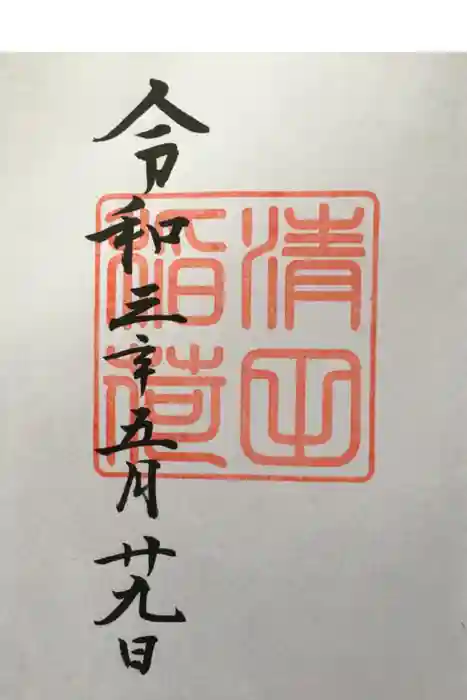 令和三年五月廿九日
清
稲荷